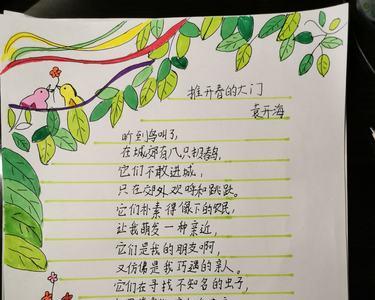 推开春的大门
袁开海
听到鸟叫了,
在城郊有八只布谷鸟,
它们不敢进城,
只在郊外欢呼和跳跃。
它们朴素得像下的农民,
让我萌发一种亲近,
它们是我的朋友啊,
又仿佛是我巧遇的亲人。
它们在寻找不知名的虫子,